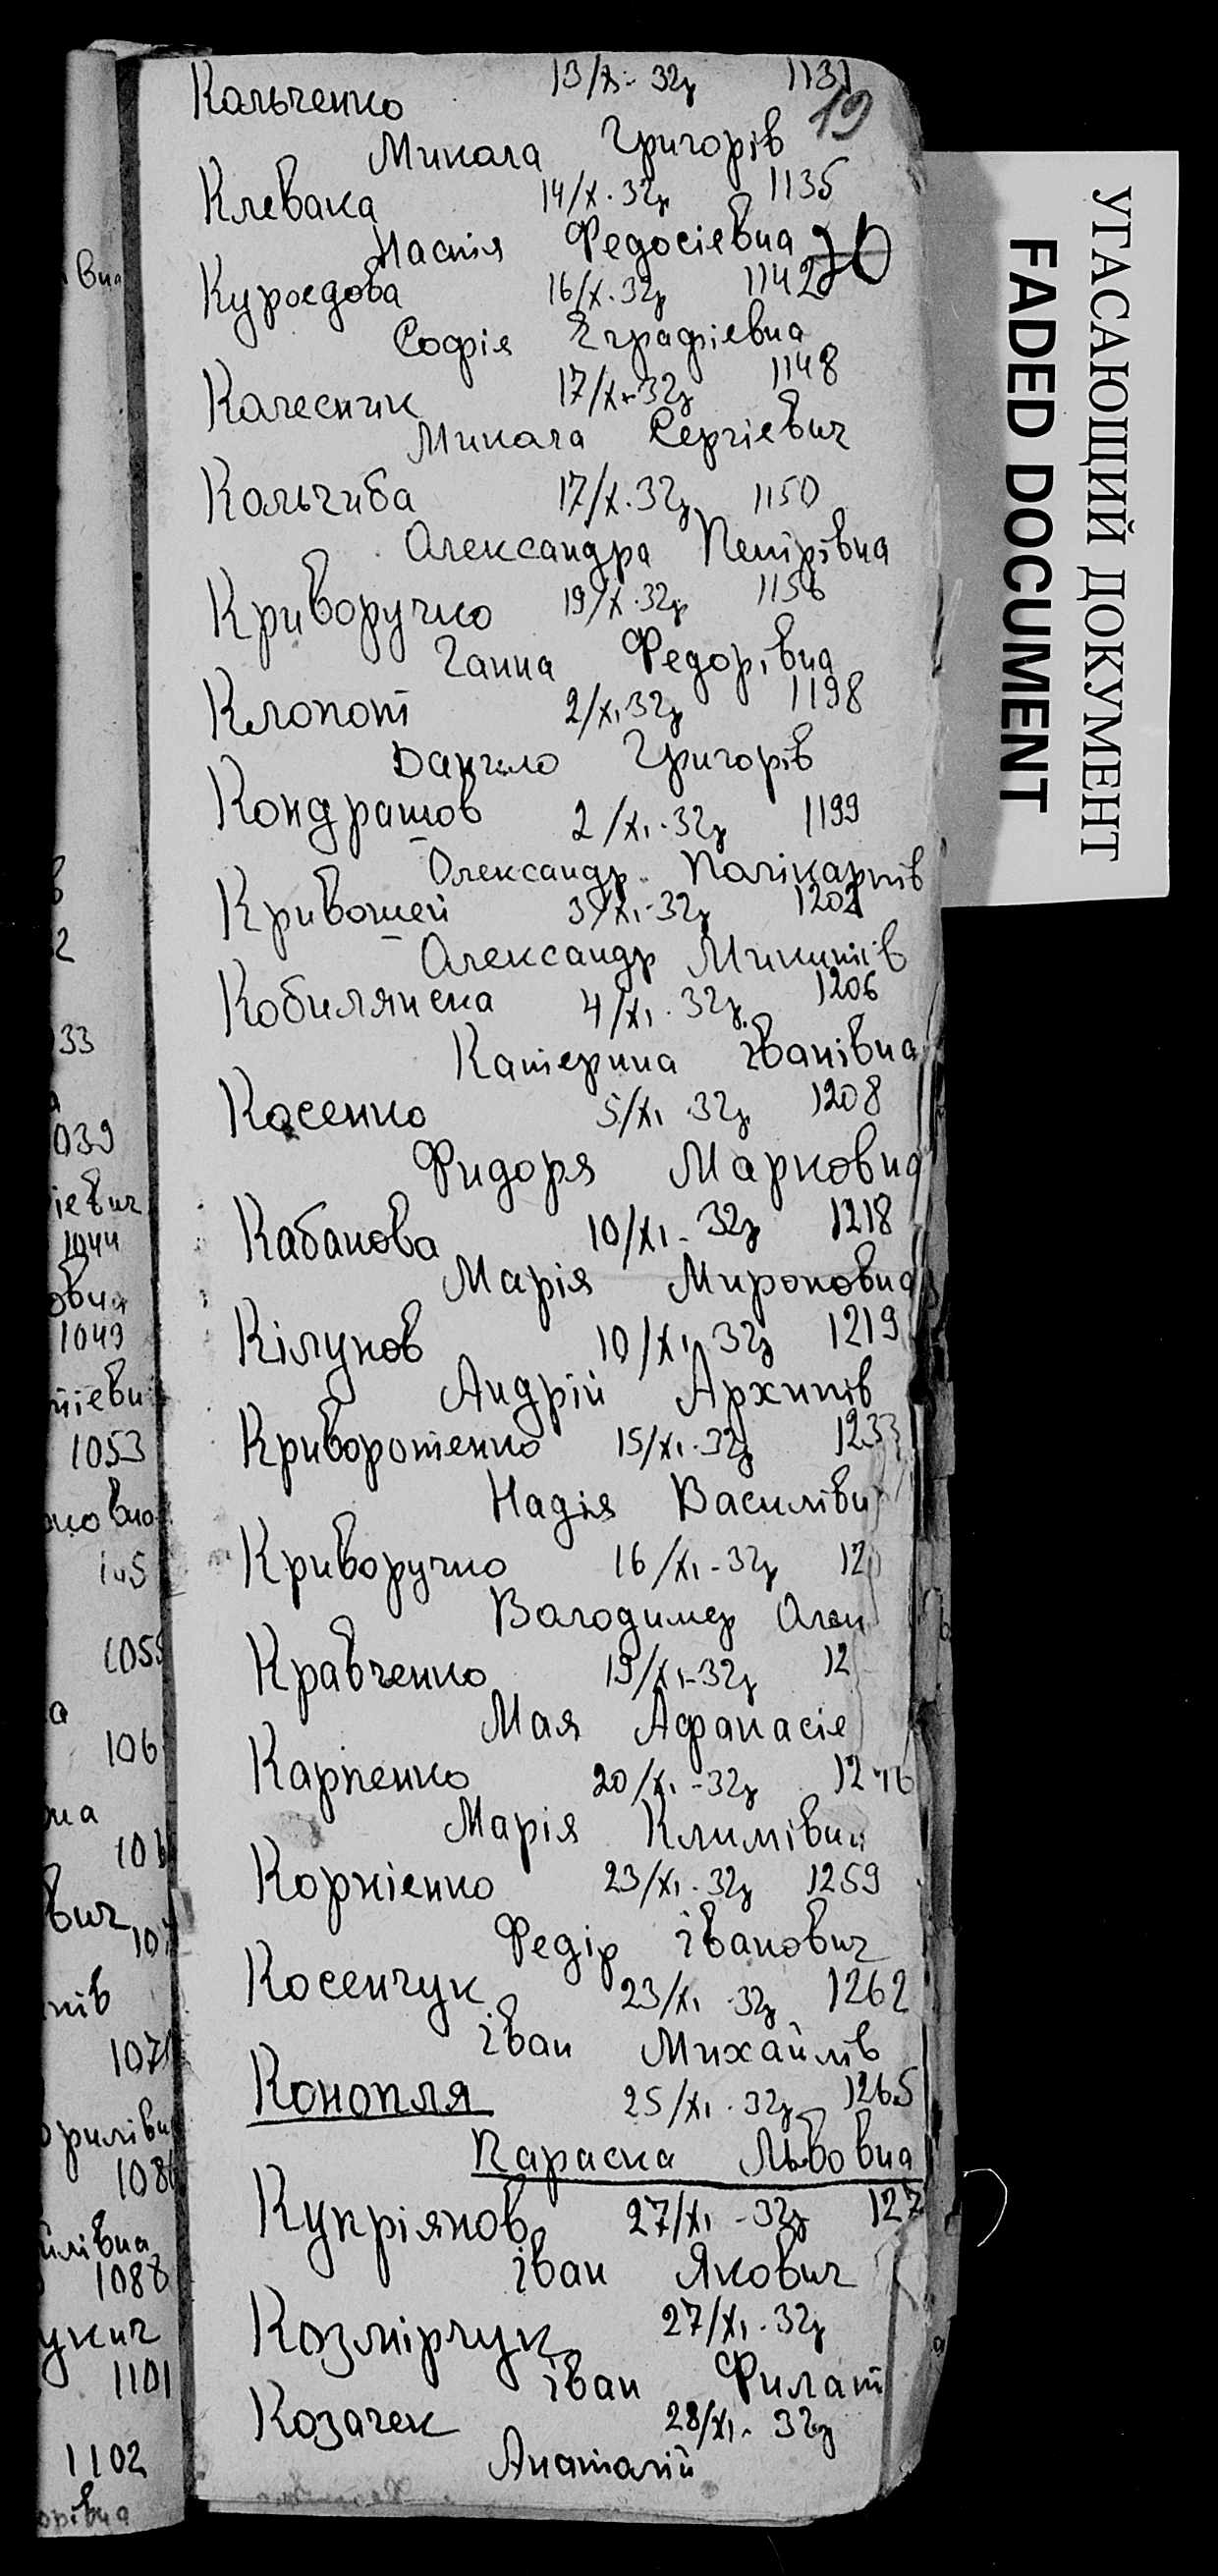 Кальченко 13/X- 32р 1131
19
Микола Григорів
Клевака 14/X. 32р 1135
Настія Федосієвна
20
Куроєдова 16/X. 32р 1142
Софія Єграфієвна
Колесник 17/X- 32р 1148
Микола Сергієвич
Кольчиба 17/X. 32р 1150
Олександра Петрівна
Криворучко 19/X. 32р 1156
Ганна Федорівна
Клопот 2/XI 32р 1198
Данило Григорів
Кондрашов 2/XI. 32р 1199
Олександр Полікарпів
Кривошей 3/XI. 32р 1202
Олександр Микитів
Кобилянска 4/XI. 32р. 1206
Катерина Іванівна
Косенко 5/XI. 32р 1208
Фидоря Марковна
Кабанова 10/XI- 32р 1218
Марія Мироновна
Кілунов 10/XI. 32р 1219
Андрій Архипів
Криворотенко 15/XI. 32р 1233
Надія Василівн
Криворучко 16/XI- 32р 12
Володимер Олек
Кравченко 19/XI- 32р 12
Мая Афанасіе
Карпенко 20/XI- 32р 1246
Марія Климівна
Корнієнко 23/XI. 32р 1259
Федір Іванович
Косенчук 23/XI. 32р 1262
Іван Михайлів
Конопля 25/XI. 32р 1265
Параска Львовна
Купріянов 27/XI- 32р 127
Іван Якович
Козмірчук 27/XI. 32р
Іван Филат
Козачек 28/XI. 32р
Анатолій
УГАСАЮЩИЙ ДОКУМЕНТ
FADED DOCUMENT
вна
в
2
33
а
039
ієвич
1044
1049
1053
1055
а
106
на
вич
107
пів
1071
1088
укич
1101
1102
орівна